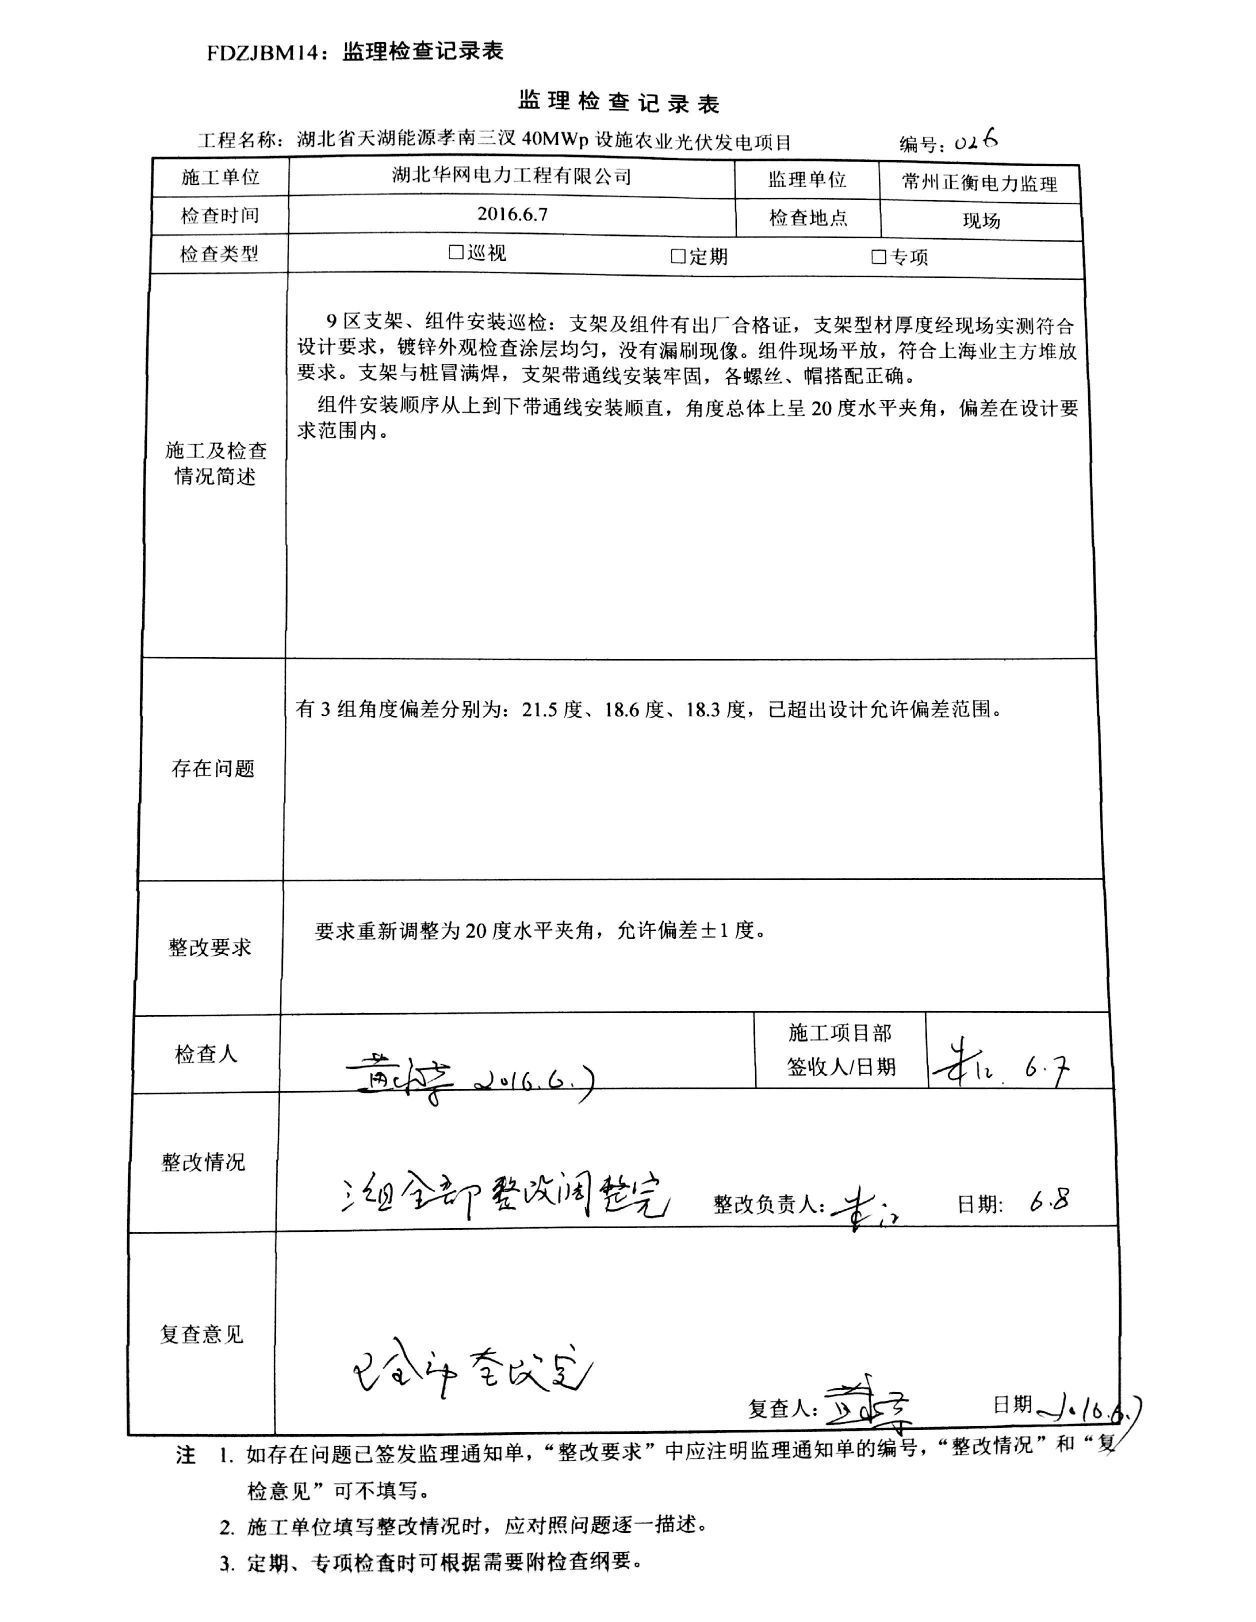 FDZJBM14：监理检查记录表
监理检查记录表
工程名称：湖北省天湖能源孝南三汊 40MWp 设施农业光伏发电项目 编号：026
施工单位 湖北华网电力工程有限公司 监理单位 常州正衡电力监理
检查时间 2016.6.7 检查地点 现场
检查类型 □巡视 □定期 □专项
9 区支架、组件安装巡检：支架及组件有出厂合格证，支架型材厚度经现场实测符合
设计要求，镀锌外观检查涂层均匀，没有漏刷现像。组件现场平放，符合上海业主方堆放
要求。支架与桩冒满焊，支架带通线安装牢固，各螺丝、帽搭配正确。
组件安装顺序从上到下带通线安装顺直，角度总体上呈 20 度水平夹角，偏差在设计要
求范围内。
施工及检查
情况简述
有 3 组角度偏差分别为：21.5 度、18.6 度、18.3 度，已超出设计允许偏差范围。
存在问题
整改要求 要求重新调整为 20 度水平夹角，允许偏差±1 度。
检查人 2016.6.7 施工项目部
签收人/日期 6.7
整改情况 三组全部整改调整完 整改负责人： 日期: 6.8
复查意见 已全部整改完
复查人： 日期 2016.6.
注 1. 如存在问题已签发监理通知单，“整改要求”中应注明监理通知单的编号，“整改情况”和“复
检意见”可不填写。
2. 施工单位填写整改情况时，应对照问题逐一描述。
3. 定期、专项检查时可根据需要附检查纲要。